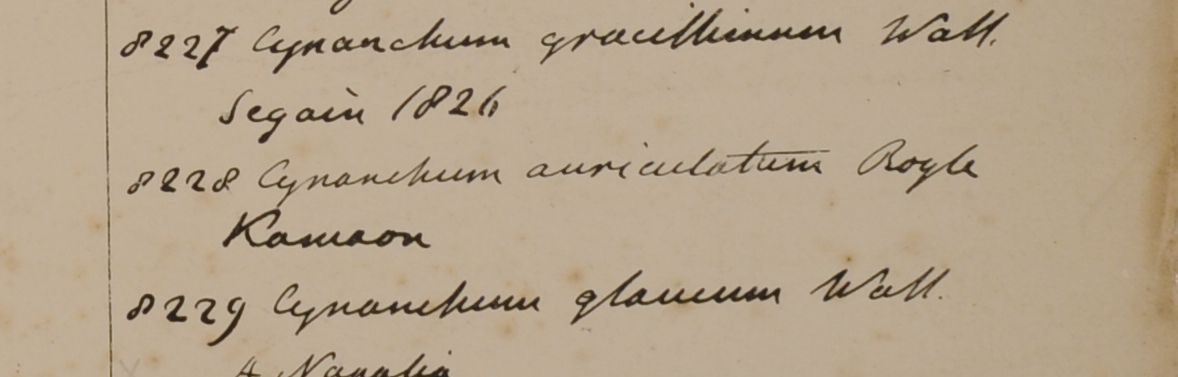 8227 Cynanchum gracillimum Wall.
Segain 1826
8228 Cynanchum auriculatum Royle
Kamaon
8229 Cynanchum glaucum Wall.